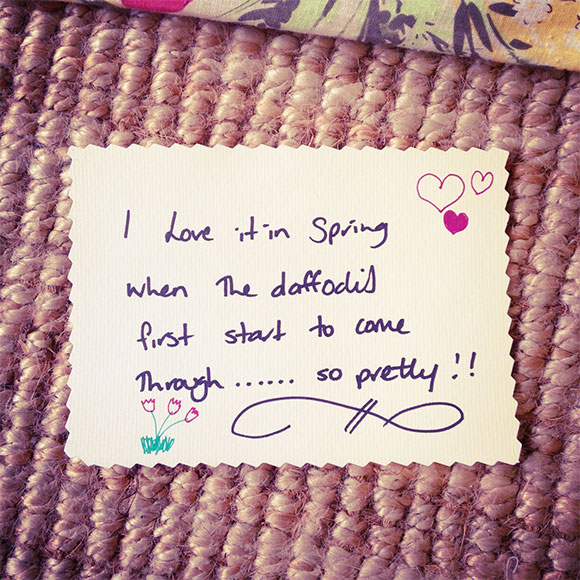 I Love it in Spring
when The daffodils
first start to come
Through ...... so pretty !!